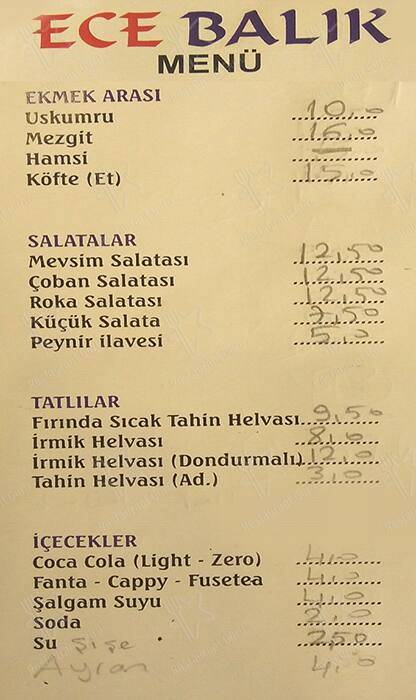 ECE BALIK
MENÜ
EKMEK ARASI
Uskumru 10,0
Mezgit 15,0
Hamsi —
Köfte (Et) 15,0
SALATALAR
Mevsim Salatası 12,50
Çoban Salatası 12,50
Roka Salatası 12,50
Küçük Salata 7,50
Peynir ilavesi 5,0
TATLILAR
Fırında Sıcak Tahin Helvası 9,50
İrmik Helvası 8,0
İrmik Helvası (Dondurmalı) 12,0
Tahin Helvası (Ad.) 3,0
İÇECEKLER
Coca Cola (Light - Zero) 4,0
Fanta - Cappy - Fusetea 4,0
Şalgam Suyu 4,0
Soda 2,0
Su şişe 2,50
Ayran 4,0